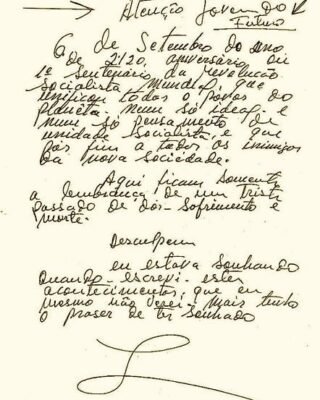 Atenção Jovem do
Futuro
6 de Setembro do ano
de 2120, aniversário ou
1º Sentenário da revolução
socialista mundial, que
unificou todos o povos do
planeta, num só ideal e
num só pensamento de
unidade socialista, e que
pôs fim a todos os inimigos
da nova sociedade.
Aqui ficam somente
a lembrança de um triste
passado de dor, sofrimento e
morte.
Desculpem
eu estava sonhando
Quando escrevi estes
acontecimentos, que eu
mesmo não verei, mais tenho
o praser de ter sonhado